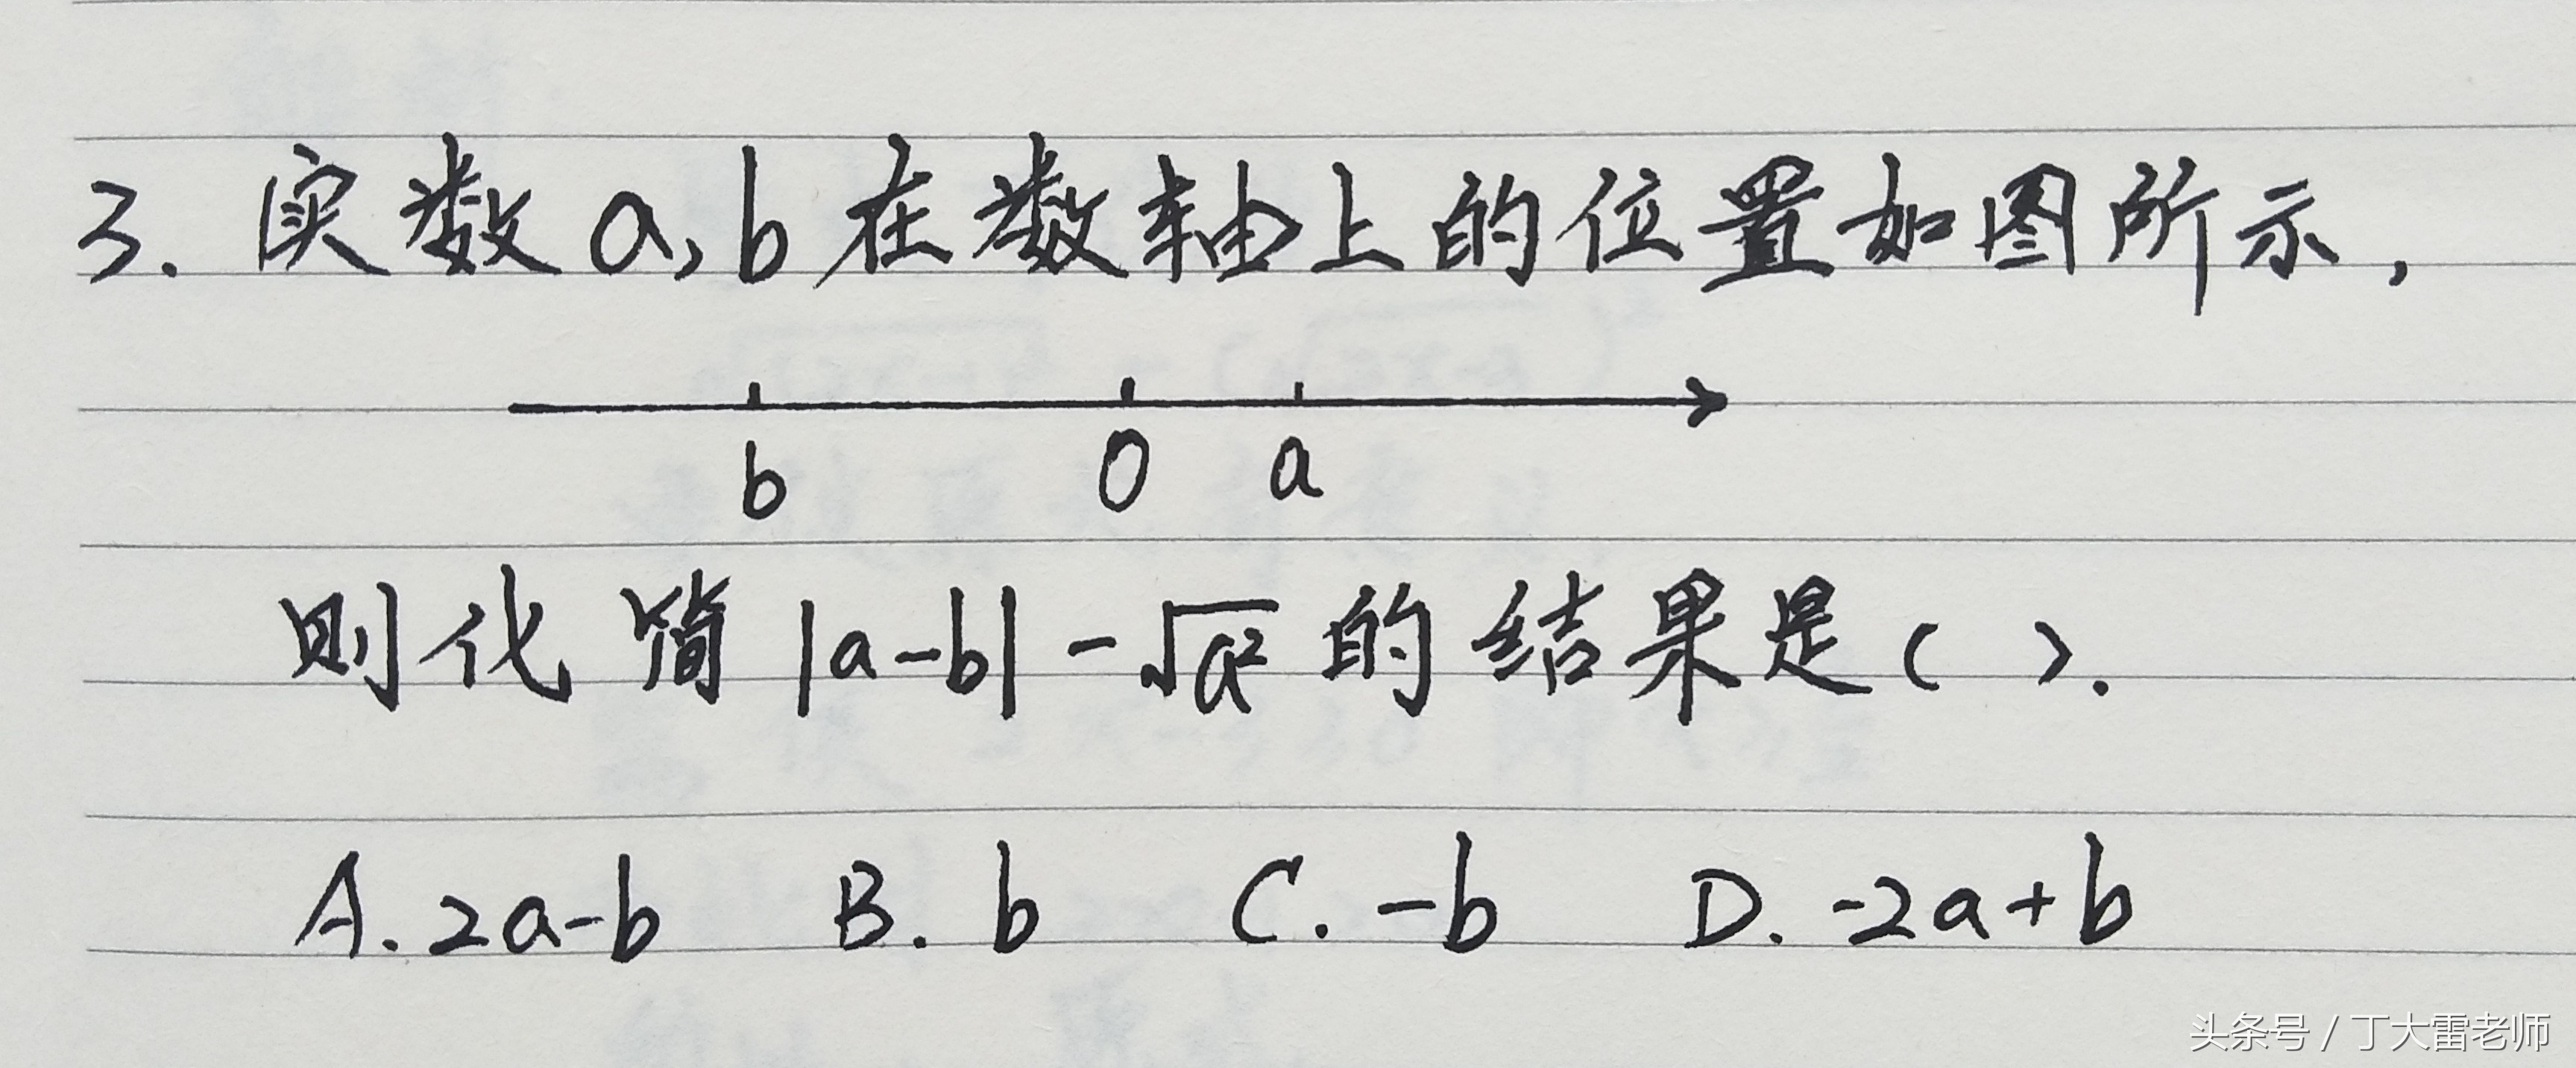 3. 实数a,b在数轴上的位置如图所示,
b 0 a
则化简|a-b|-√a²的结果是( ).
A. 2a-b B. b C. -b D. -2a+b
头条号 / 丁大雷老师